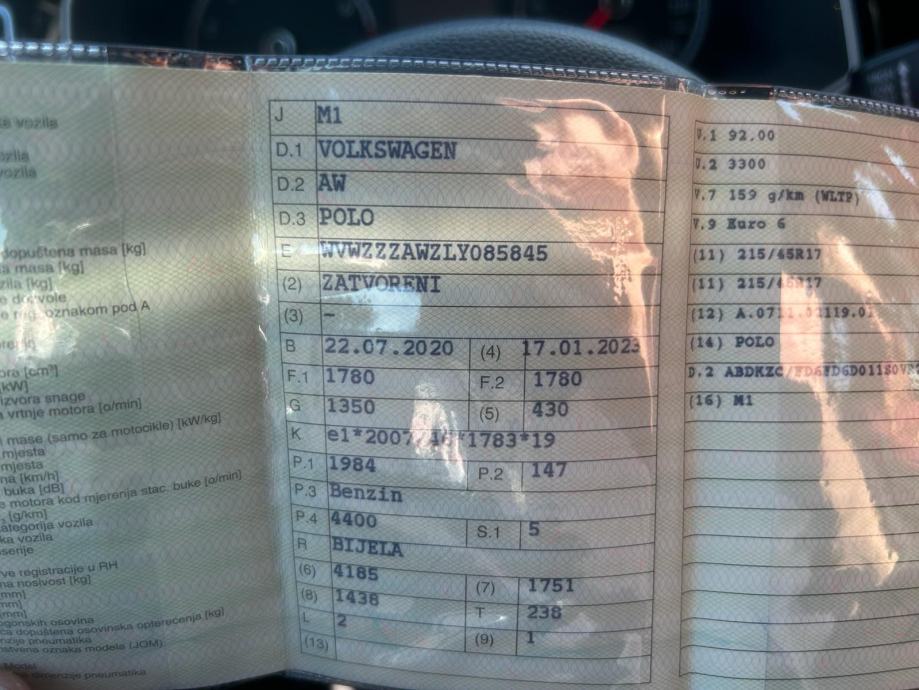 vozila
dopuštena masa [kg]
a masa [kg]
zila [kg]
oznakom pod A
[kW]
izvora snage
vrtnje motora [o/min]
mase (samo za motocikle) [kW/kg]
mjesta
mjesta
na [km/h]
buka [dB]
motora kod mjerenja stac. buke [o/min]
[g/km]
kategorija vozila
ka vozila
ve registracije u RH
na nosivost [kg]
[mm]
[mm]
pogonskih osovina
dopuštena osovinska opterećenja [kg]
pneumatika
oznaka modela (JOM)
Model
dimenzije pneumatika
J M1
D.1 VOLKSWAGEN
D.2 AW
D.3 POLO
E WVWZZZAWZLY085845
(2) ZATVORENI
(3) –
B 22.07.2020 (4) 17.01.2023
F.1 1780 F.2 1780
G 1350 (5) 430
K e1*2007/46*1783*19
P.1 1984 P.2 147
P.3 Benzin
P.4 4400 S.1 5
R BIJELA
(6) 4185 (7) 1751
(8) 1438 T 238
L 2 (9) 1
(13)
V.1 92.00
V.2 3300
V.7 159 g/km (WLTP)
V.9 Euro 6
(11) 215/45R17
(11) 215/45R17
(12)
(14) POLO
D.2
(16) M1